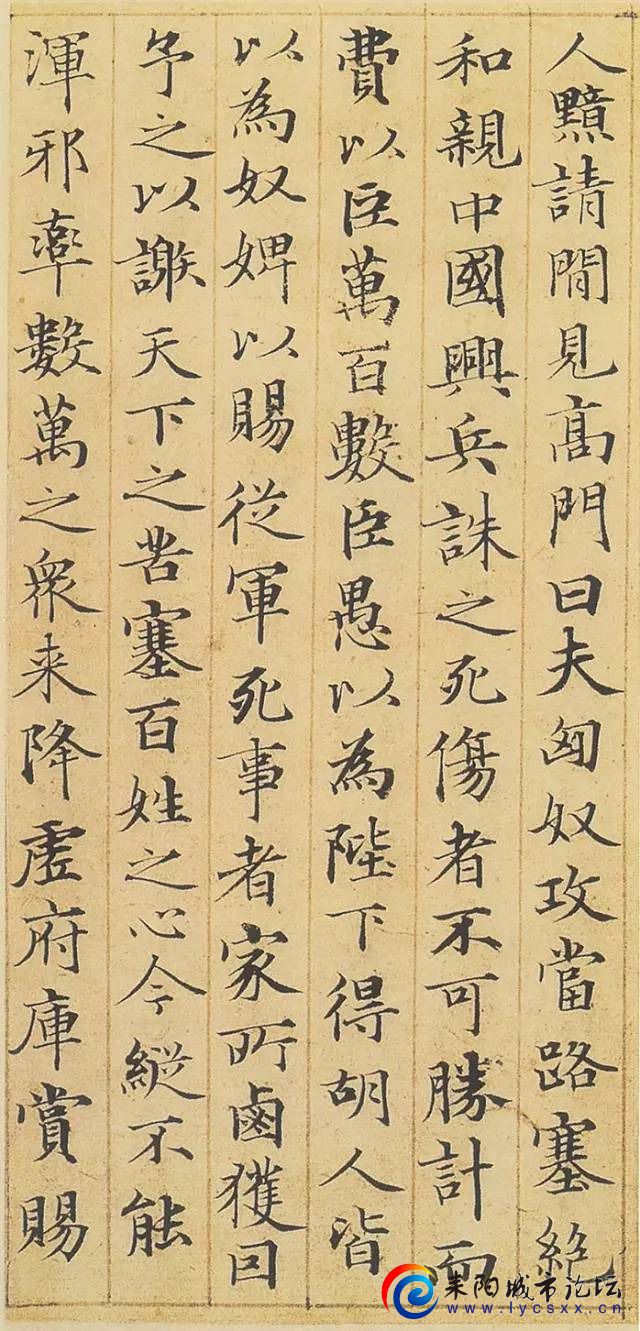 人黯請間見髙門曰夫匈奴攻當路塞絶
和親中國興兵誅之死傷者不可勝計而
費以臣萬百數臣愚以為陛下得胡人皆
以為奴婢以賜從軍死事者家所鹵獲因
予之以謝天下之苦塞百姓之心今縱不能
渾邪率數萬之衆来降虛府庫賞賜
耒阳城市论坛
www.lycsxx.cn